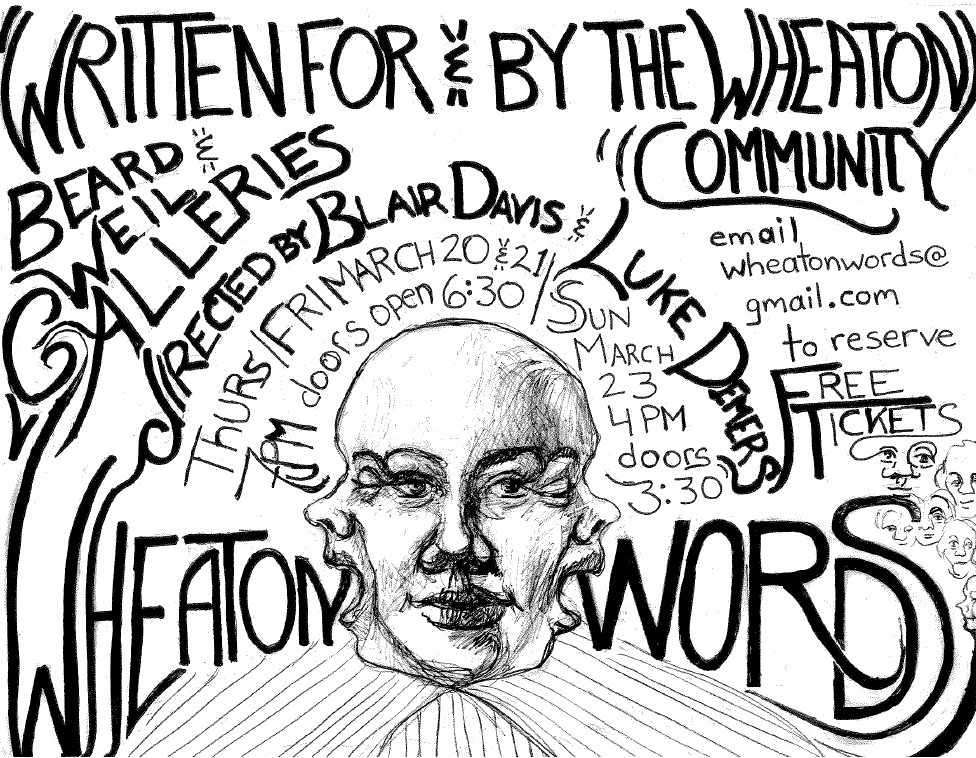 WRITTEN FOR & BY THE WHEATON
COMMUNITY
BEARD &
WEIL
GALLERIES
DIRECTED BY BLAIR DAVIS & LUKE DEMERS
THURS/FRI MARCH 20 & 21/
7PM doors open 6:30
SUN
MARCH
23
4PM
doors
3:30
email
wheatonwords@
gmail.com
to reserve
FREE
TICKETS
WHEATON WORDS